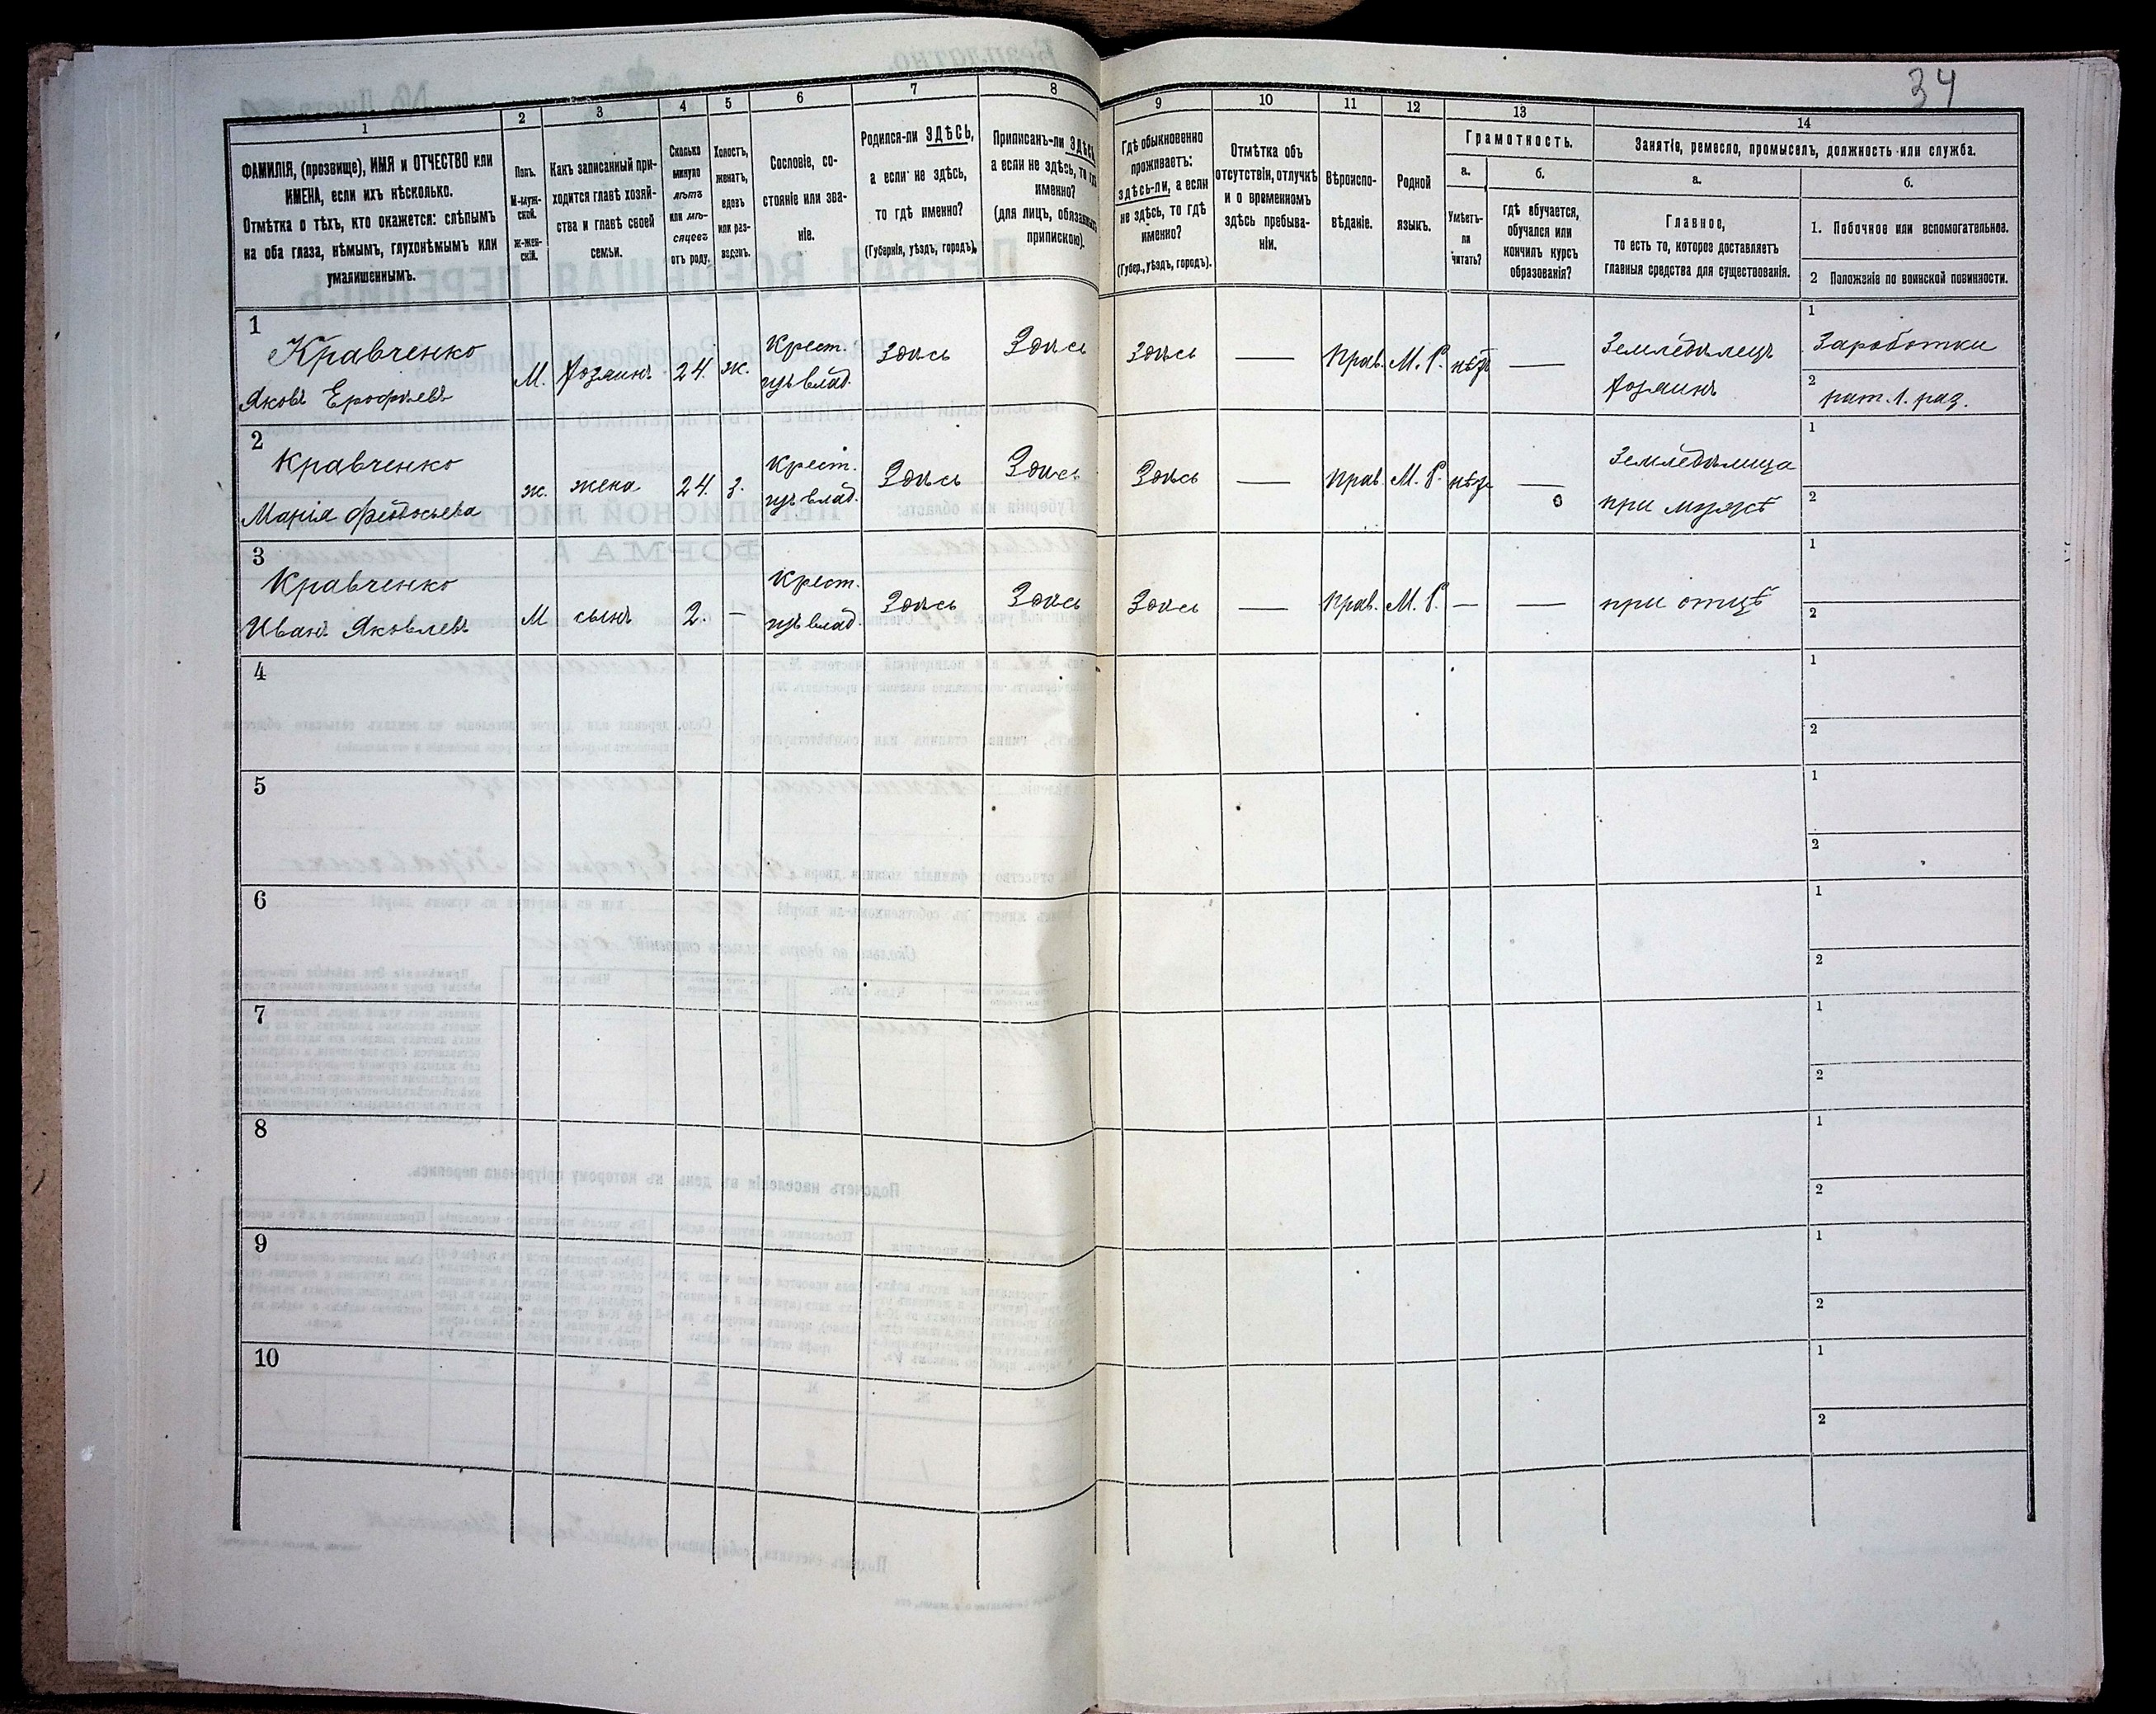 34
1
2
3
4
5
6
7
8
9
10
11
12
13
14
ФАМИЛІЯ, (прозвище), ИМЯ и ОТЧЕСТВО или
ИМЕНА, если ихъ нѣсколько.
Отмѣтка о тѣхъ, кто окажется: слѣпымъ
на оба глаза, нѣмымъ, глухонѣмымъ или
умалишеннымъ.
Полъ.
М-муж-
ской.
Ж-жен-
скій.
Какъ записанный при-
ходится главѣ хозяй-
ства и главѣ своей
семьи.
Сколько
минуло
лѣтъ
или мѣ-
сяцевъ
отъ роду.
Холостъ,
женатъ,
вдовъ
или раз-
веденъ.
Сословіе, со-
стояніе или зва-
ніе.
Родился-ли ЗДѢСЬ,
а если не здѣсь,
то гдѣ именно?
(Губернія, уѣздъ, городъ).
Приписанъ-ли ЗДѢСЬ,
а если не здѣсь, то гдѣ
именно?
(для лицъ, обязанныхъ
припиской).
Гдѣ обыкновенно
проживаетъ:
здѣсь-ли, а если
не здѣсь, то гдѣ
именно?
(Губер., уѣздъ, городъ).
Отмѣтка объ
отсутствіи, отлучкѣ
и о временномъ
здѣсь пребыва-
ніи.
Вѣроиспо-
вѣданіе.
Родной
языкъ.
Грамотность.
а.
б.
Умѣетъ-
ли
читать?
гдѣ обучается,
обучался или
кончилъ курсъ
образованія?
Занятіе, ремесло, промыселъ, должность или служба.
а.
б.
Главное,
то есть то, которое доставляетъ
главныя средства для существованія.
1. Побочное или вспомогательное.
2 Положеніе по воинской повинности.
1
Кравченко
Яковъ Ерофѣевъ
М. хозяинъ 24. ж.
Крест.
изъ влад.
Здѣсь Здѣсь Здѣсь — Прав. М. Р. нѣтъ —
Земледѣлецъ
хозяинъ
1
Заработки
2
рат. 1. раз.
2
Кравченко
Марія Ѳеодосьева
ж. жена 24. з.
Крест.
изъ влад.
Здѣсь Здѣсь Здѣсь — Прав. М. Р. нѣтъ —
Земледѣлица
при мужѣ
1
2
3
Кравченко
Иванъ Яковлевъ
М сынъ 2. —
Крест.
изъ влад.
Здѣсь Здѣсь Здѣсь — Прав. М. Р. — —
при отцѣ
1
2
4
1
2
5
1
2
6
1
2
7
1
2
8
1
2
9
1
2
10
1
2